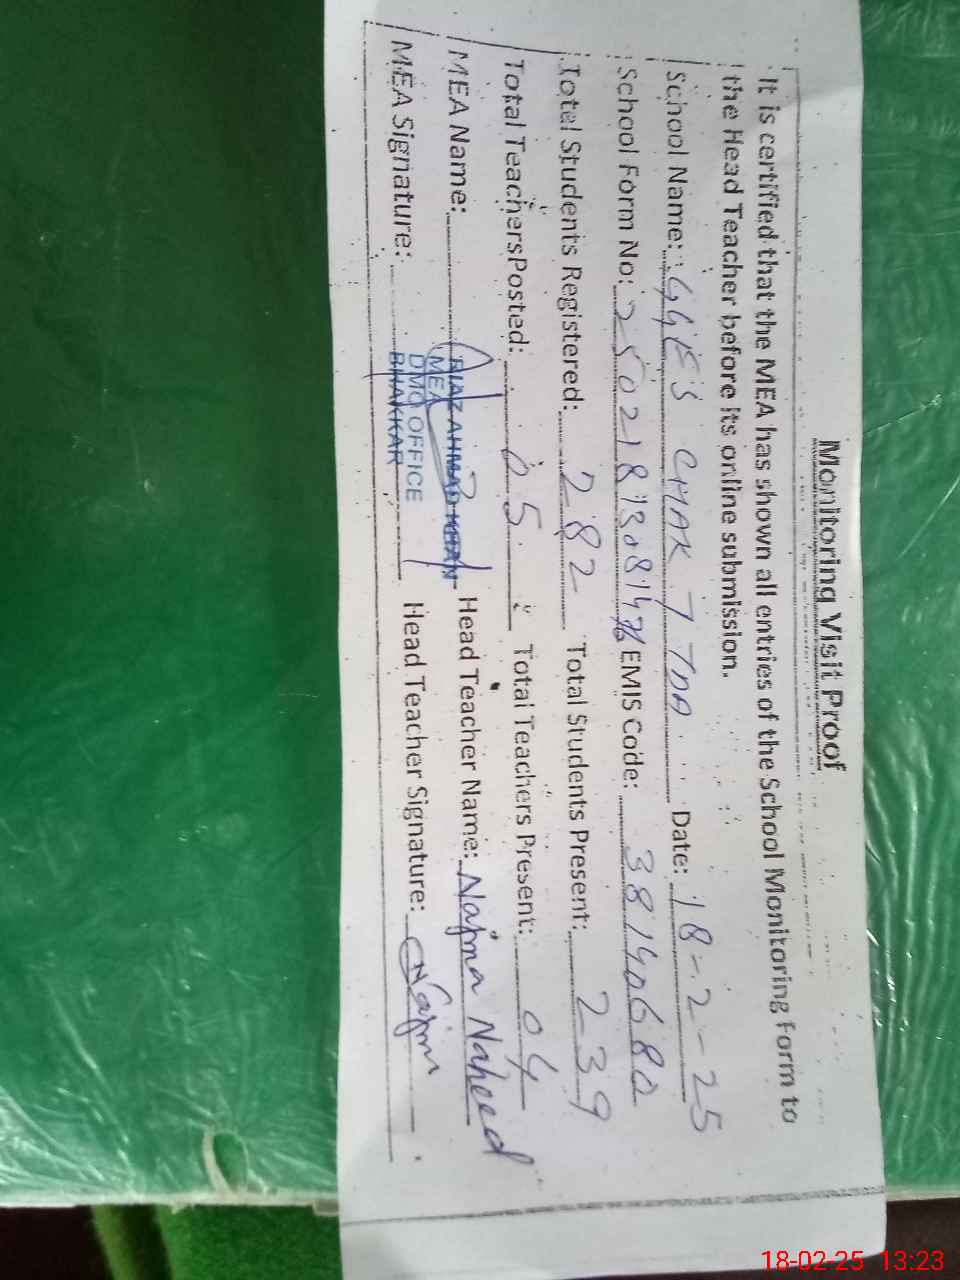 Monitoring Visit Proof
It is certified that the MEA has shown all entries of the School Monitoring Form to
the Head Teacher before its online submission.
School Name: GGES CHAK 7 TDA Date: 18-2-25
School Form No: EMIS Code:
Total Students Registered: 282 Total Students Present: 239
Total Teachers Posted: 05 Total Teachers Present: 04
MEA Name: RIAZ AHMAD KHAN Head Teacher Name: Najma Naheed
MEA
DMO OFFICE
BHAKKAR
MEA Signature: Head Teacher Signature: Najm
18-02-25 13:23